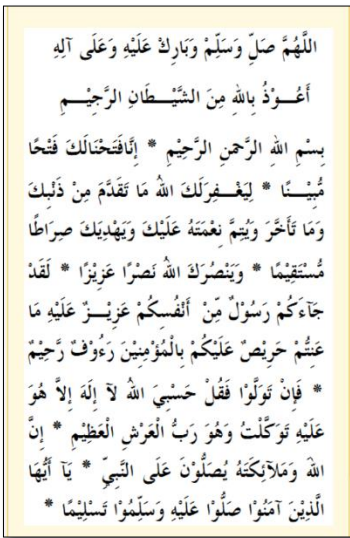 اللَّهُمَّ صَلِّ وَسَلِّمْ وَبَارِكْ عَلَيْهِ وَعَلَى آلِهِ
أَعُـــوْذُ بِاللهِ مِنَ الشَّيْـــطَانِ الرَّجِيْـــمِ
بِسْمِ اللهِ الرَّحْمنِ الرَّحِيْمِ * إِنَّافَتَحْنَالَكَ فَتْحًا
مُّبِيْـــنًا * لِيَغْـــفِرَلَكَ اللهُ مَا تَقَدَّمَ مِنْ ذَنْبِكَ
وَمَا تَأَخَّرَ وَيُتِمَّ نِعْمَتَهُ عَلَيْكَ وَيَهْدِيَكَ صِرَاطًا
مُّسْتَقِيْمًا * وَيَنْصُرَكَ اللهُ نَصْرًا عَزِيْزًا * لَقَدْ
جَآءَكُمْ رَسُوْلٌ مِّنْ أَنْفُسِكُمْ عَزِيْـــزٌ عَلَيْهِ مَا
عَنِتُّمْ حَرِيْصٌ عَلَيْكُمْ بِالْمُؤْمِنِيْنَ رَءُوْفٌ رَّحِيْمٌ
* فَإِنْ تَوَلَّوْا فَقُلْ حَسْبِيَ اللهُ لآ إِلَهَ إِلاَّ هُوَ
عَلَيْهِ تَوَكَّلْتُ وَهُوَ رَبُّ الْعَرْشِ الْعَظِيْمِ * إِنَّ
اللهَ وَمَلآئِكَتَهُ يُصَلُّوْنَ عَلَى النَّبِيِّ * يَآ أَيُّهَا
الَّذِيْنَ آمَنُوْا صَلُّوْا عَلَيْهِ وَسَلِّمُوْا تَسْلِيْمًا *